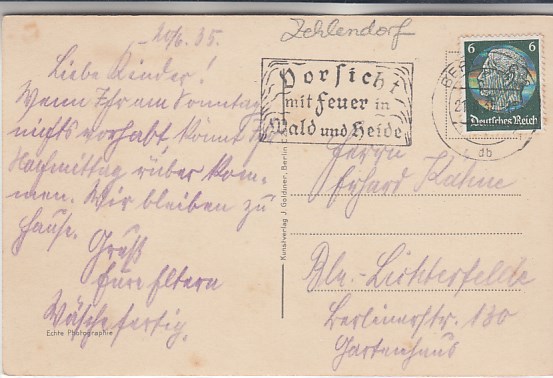 Zehlendorf
20/6.35.
Liebe Kinder!
Wenn Ihr am Sonntag
nichts vorhabt, könnt Ihr
Nachmittag rüber kom-
men. Wir bleiben zu
Hause.
Gruß
Eure Eltern
Wäsche fertig.
Echte Photographie
Kunstverlag J. Goldiner, Berlin C.
Vorsicht
mit Feuer in
Wald und Heide
BER
21
6 6
Deutsches Reich
Herrn
Erhard Kahne
Bln.-Lichterfelde
Berlinerstr. 130
Gartenhaus